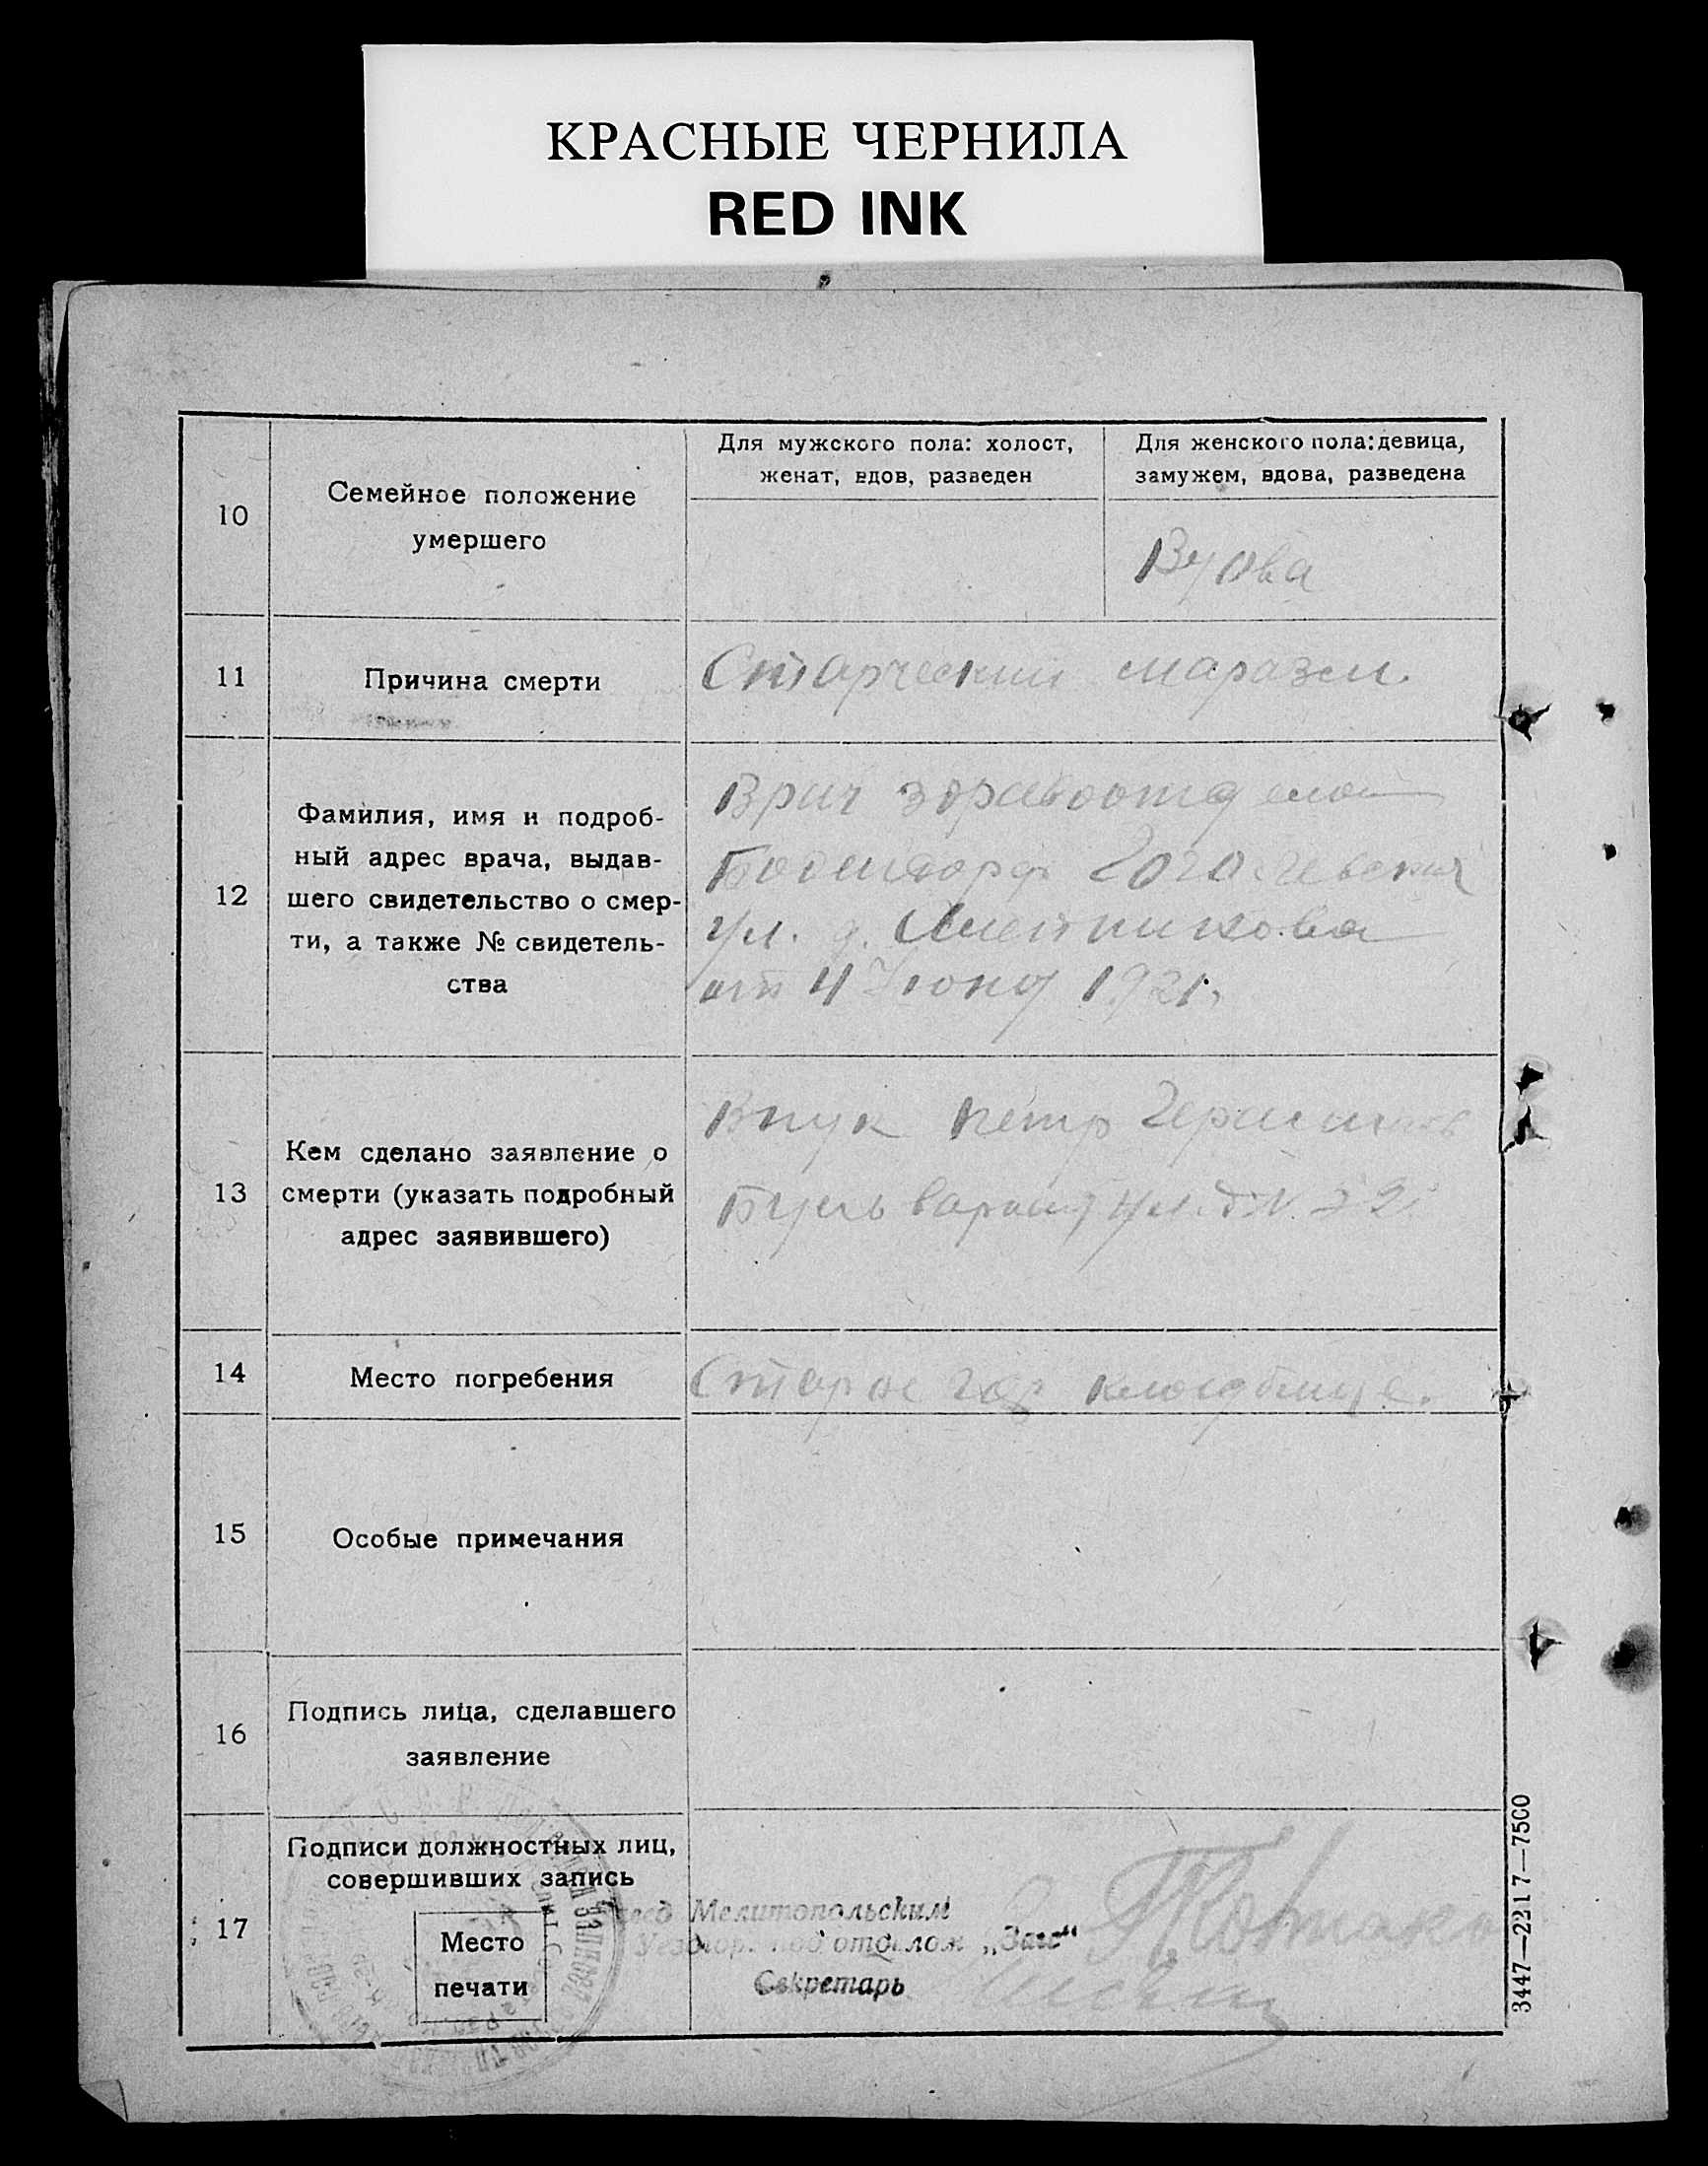 КРАСНЫЕ ЧЕРНИЛА
RED INK
10
Семейное положение
умершего
Для мужского пола: холост,
женат, вдов, разведен
Для женского пола: девица,
замужем, вдова, разведена
Вдова
11
Причина смерти
Старческий маразм.
12
Фамилия, имя и подроб-
ный адрес врача, выдав-
шего свидетельство о смер-
ти, а также № свидетель-
ства
Врач здравоотдела
Гоголевская
ул. д.
от 4 Июня 1921.
13
Кем сделано заявление о
смерти (указать подробный
адрес заявившего)
Внук Петр
ул. д N 32
14
Место погребения
Старое гор кладбище.
15
Особые примечания
16
Подпись лица, сделавшего
заявление
17
Подписи должностных лиц,
совершивших запись
Место
печати
Мелитопольским
под отделом „Загс“
Секретарь
3447—2217—7500